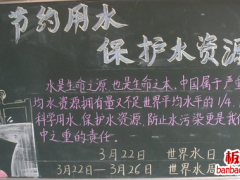 节约用水
保护水资源
水是生命之源,也是生命之本,中国属于严
均水资源拥有量又不足世界平均水平的1/4,
科学用水、保护水资源、防止水污染更是我们
中之重的责任。
3月22日 世界水日
3月22日—3月26日 世界水周
板
banban